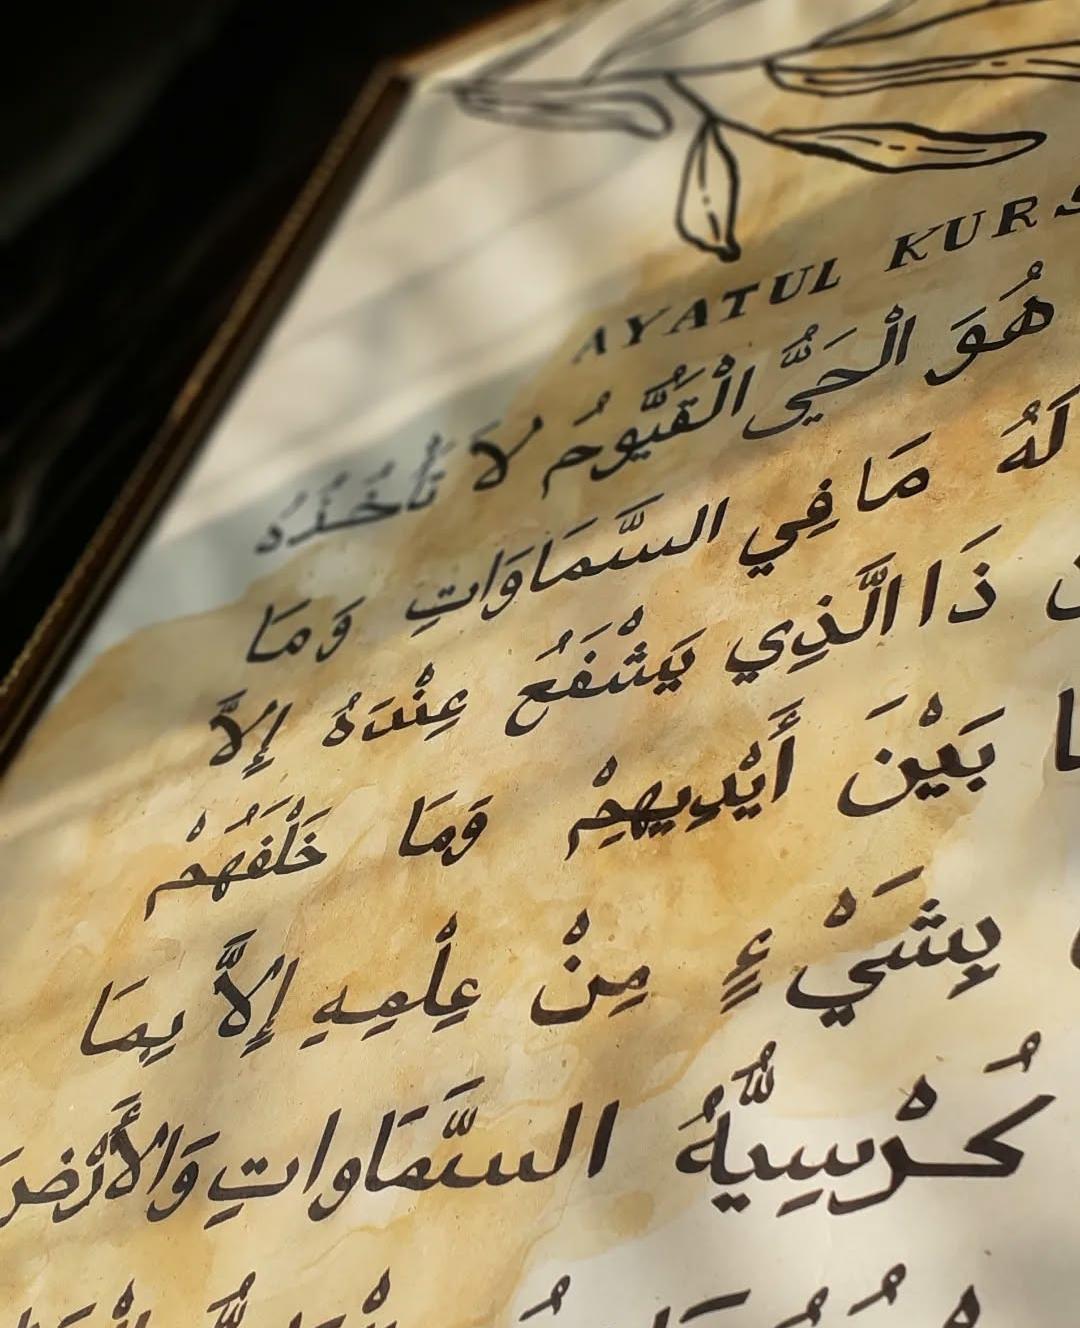 AYATUL KURS
هُوَ الْحَيُّ الْقَيُّومُ لَا تَأْخُذُهُ
لَهُ مَا فِي السَّمَاوَاتِ وَمَا
ذَا الَّذِي يَشْفَعُ عِنْدَهُ إِلَّا
بَيْنَ أَيْدِيهِمْ وَمَا خَلْفَهُمْ
بِشَيْءٍ مِنْ عِلْمِهِ إِلَّا بِمَا
كُرْسِيُّهُ السَّمَاوَاتِ وَالْأَرْضَ